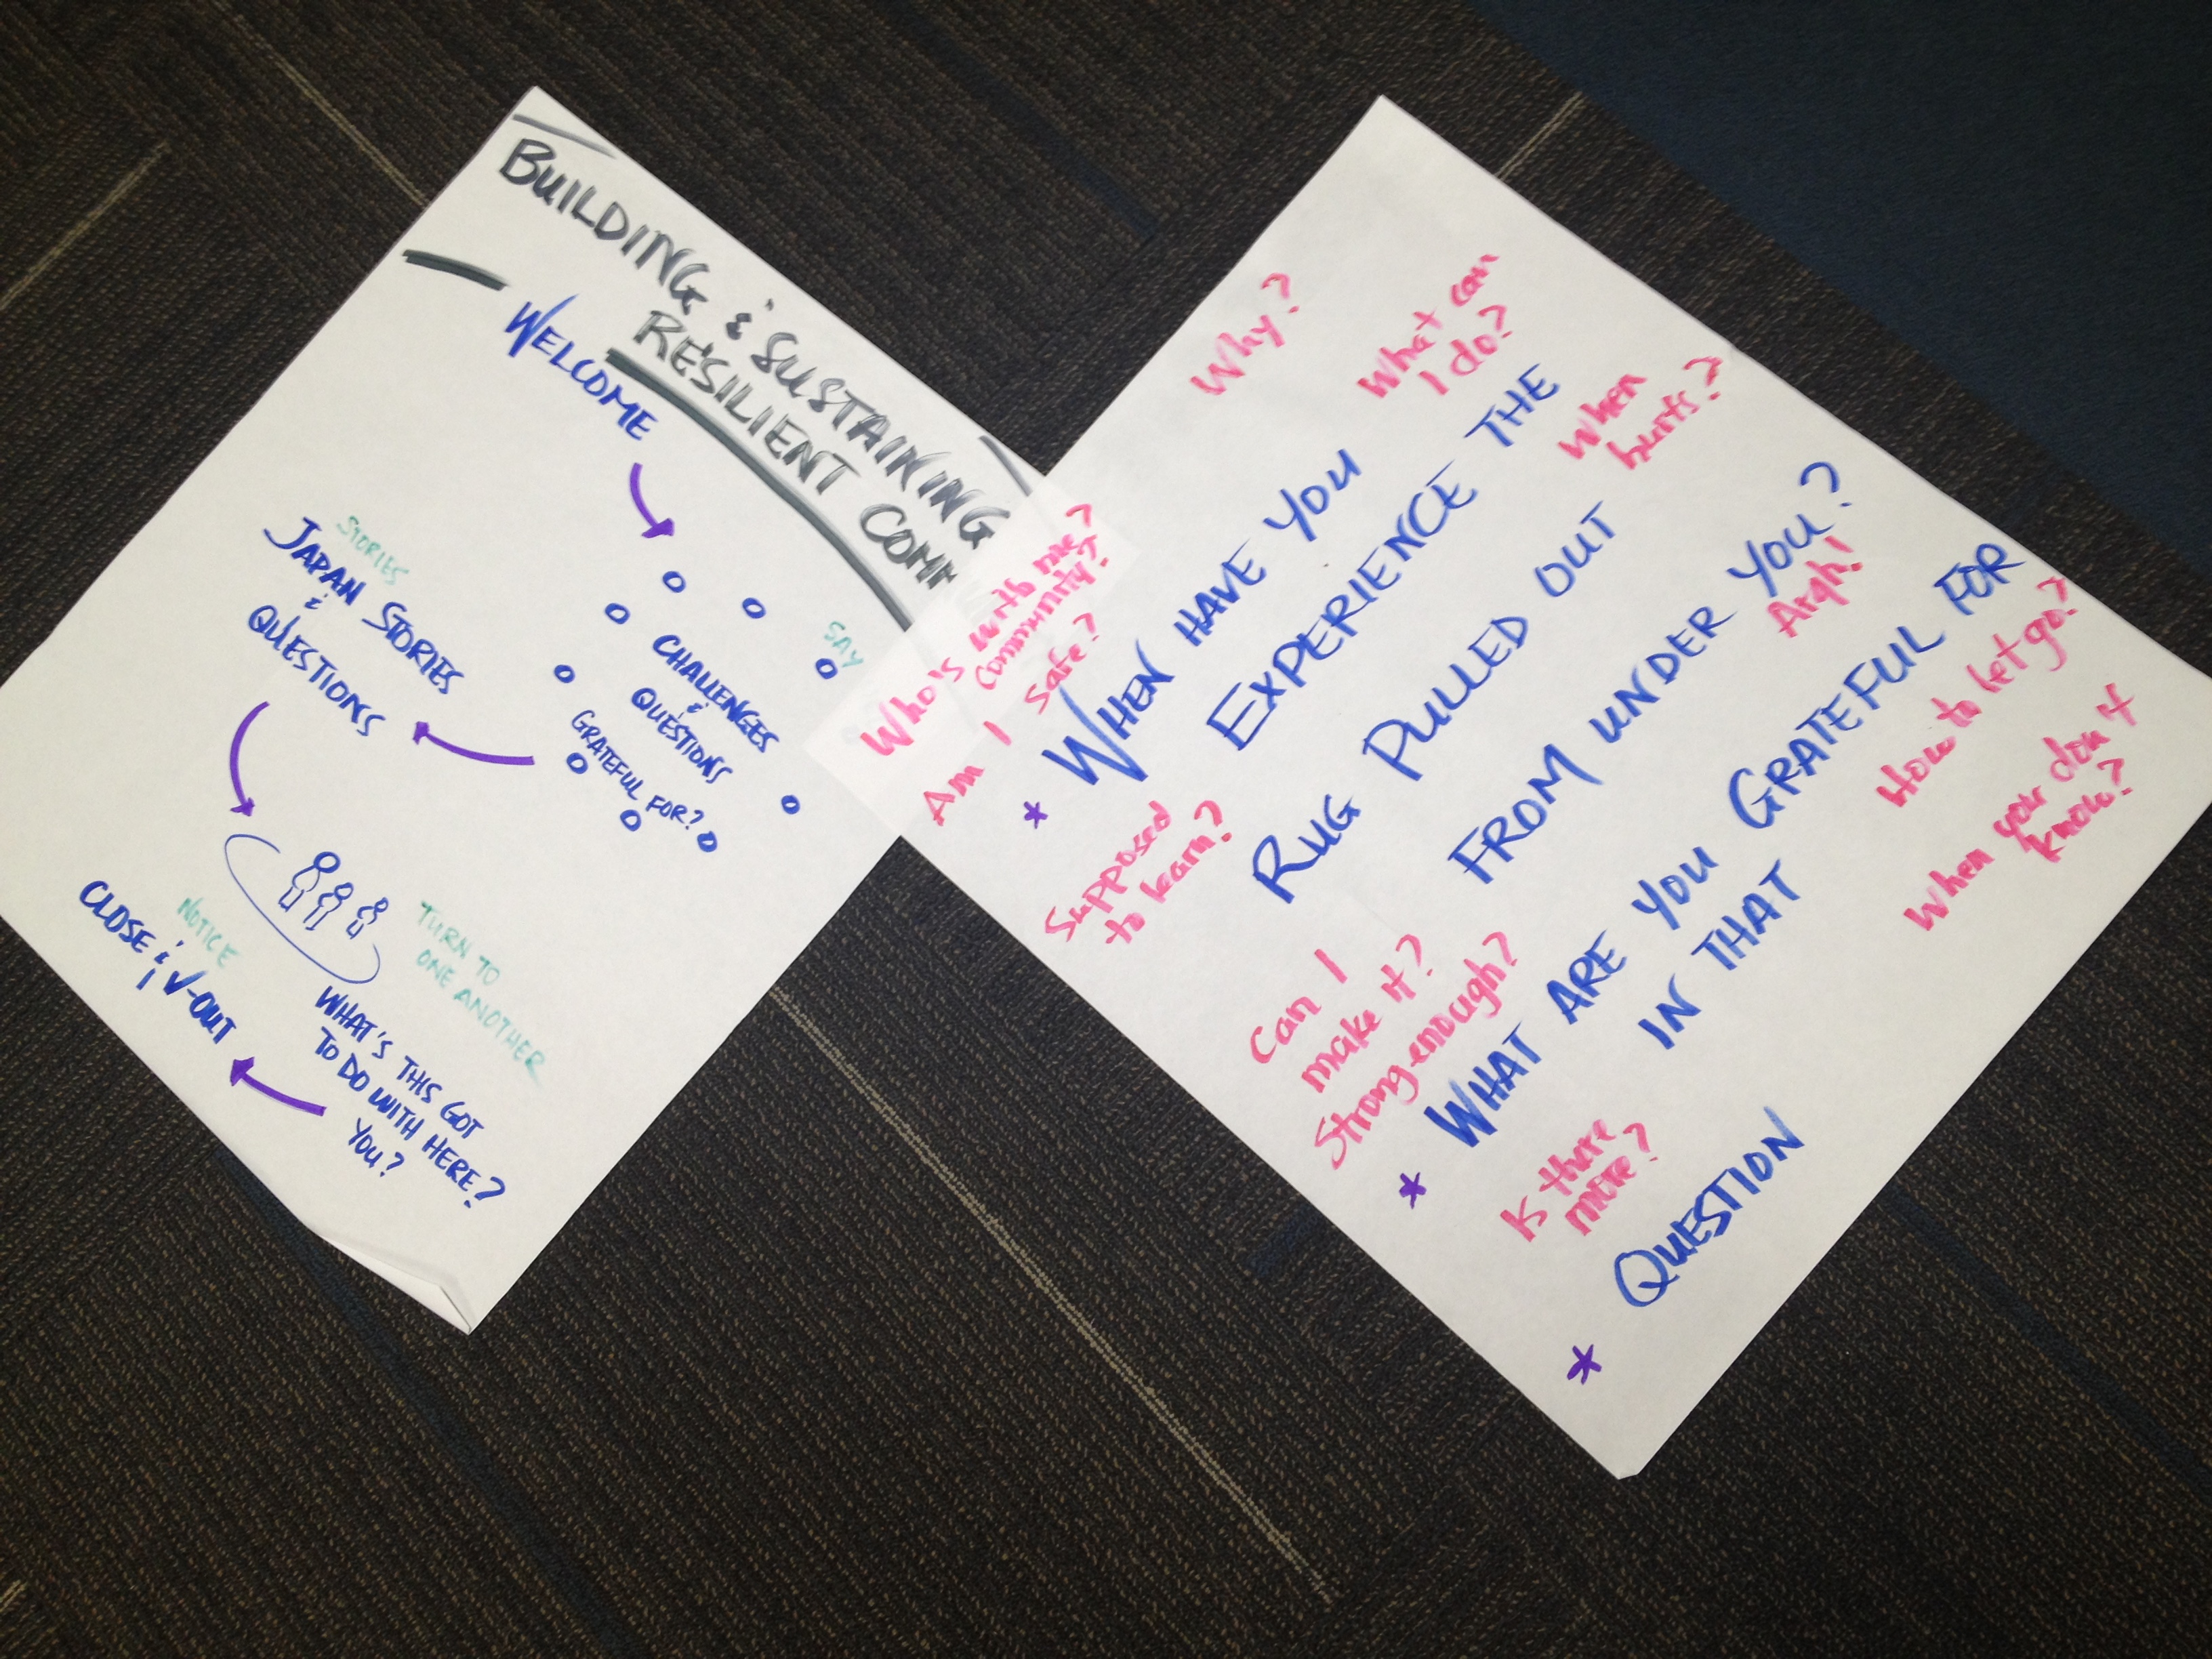 BUILDING & SUSTAINING
RESILIENT COM
WELCOME
SAY
CHALLENGES
&
QUESTIONS
GRATEFUL FOR?
STORIES
JAPAN STORIES
&
QUESTIONS
TURN TO
ONE ANOTHER
WHAT'S THIS GOT
TO DO WITH HERE?
YOU?
NOTICE
CLOSE &
-OUT
Why?
What can
I do?
When
hurts?
Who's with me?
Community?
Am I safe?
* WHEN HAVE YOU
EXPERIENCE THE
RUG PULLED OUT
FROM UNDER YOU?
Argh!
Supposed
to learn?
How to let go?
When you don't
know?
Can I
make it?
Strong enough?
* WHAT ARE YOU GRATEFUL FOR
IN THAT
Is there
more?
* QUESTION